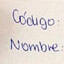 Código:
Nombre: